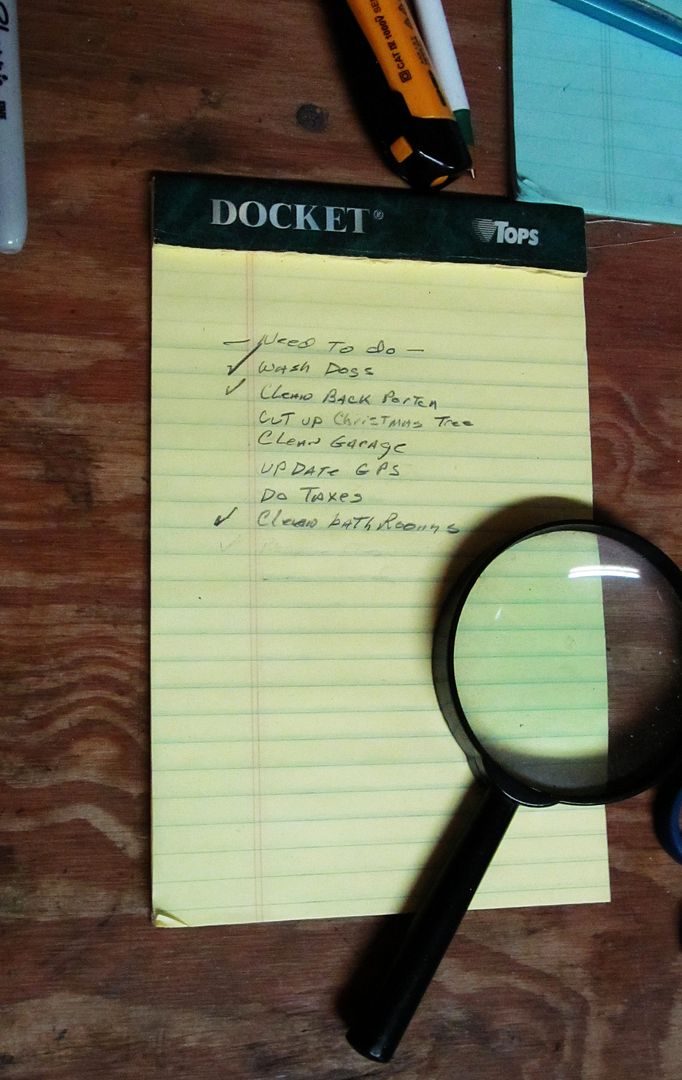 CAT III 1000V SE
DOCKET®
TOPS
— Need To do —
✓ Wash Dogs
✓ Clean Back Porch
Cut up Christmas Tree
Clean Garage
UPDATe GPS
Do Taxes
✓ Clean bathRooms